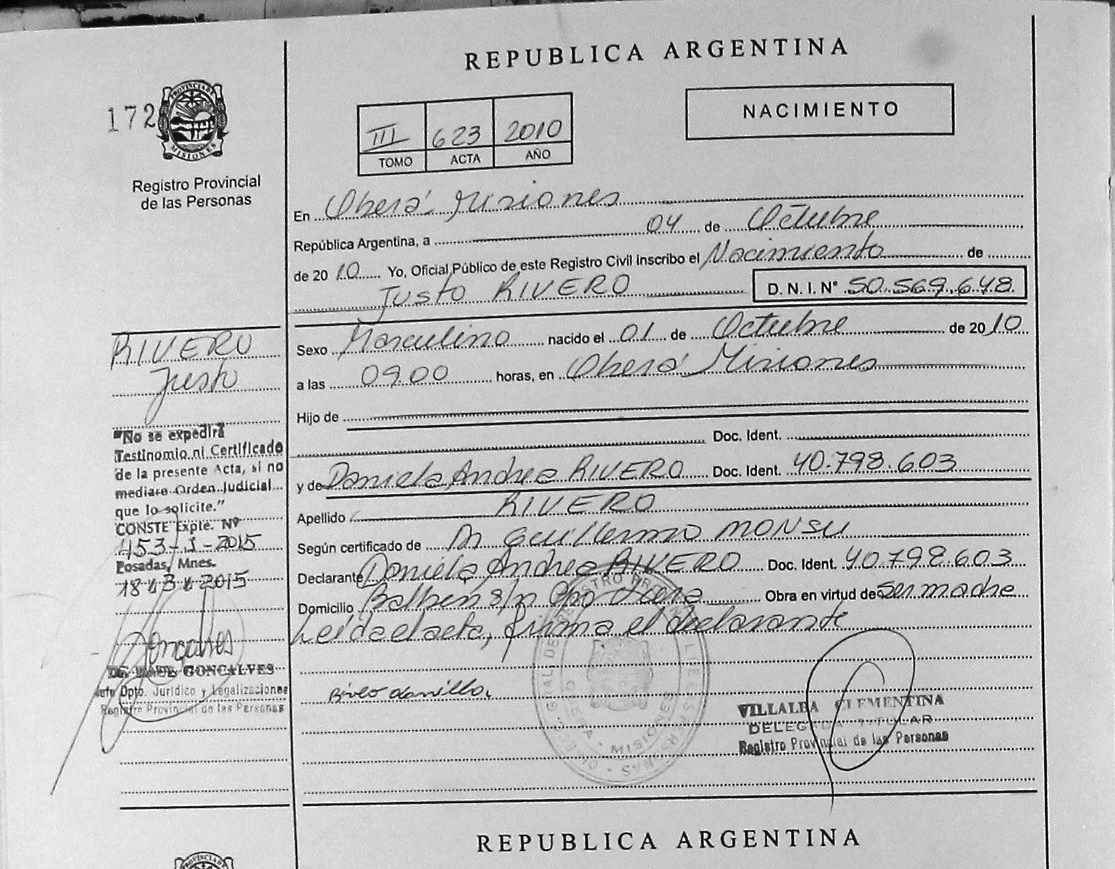 REPUBLICA ARGENTINA
172
PROVINCIA DE
MISIONES
Registro Provincial
de las Personas
III 623 2010
TOMO ACTA AÑO
NACIMIENTO
En Oberá Misiones
República Argentina, a 04 de Octubre
de 2010 Yo, Oficial Público de este Registro Civil inscribo el Nacimiento de
Justo RIVERO D.N.I. Nº 50.569.648
Sexo Masculino nacido el 01 de Octubre de 2010
a las 09.00 horas, en Oberá Misiones
Hijo de
Doc. Ident.
y de Daniela Andrea RIVERO Doc. Ident. 40.798.603
Apellido RIVERO
Según certificado de Dr Guillermo MONSU
Declarante Daniela Andrea RIVERO Doc. Ident. 40.798.603
Domicilio Balben s/n Obra en virtud de ser madre
Leida el acta, firma el declarante
RIVERO
Justo
"No se expedirá
Testinomio ni Certificado
de la presente Acta, si no
mediare Orden Judicial
que lo solicite."
CONSTE Expte. Nº
453-J-2015
Posadas, Mnes.
18 3 2015
Goncalves
GONCALVES
Jefe Dpto. Jurídico y Legalizaciones
Registro Provincial de las Personas
VILLALBA CLEMENTINA
DELEGADA TITULAR
Registro Provincial de las Personas
REPUBLICA ARGENTINA